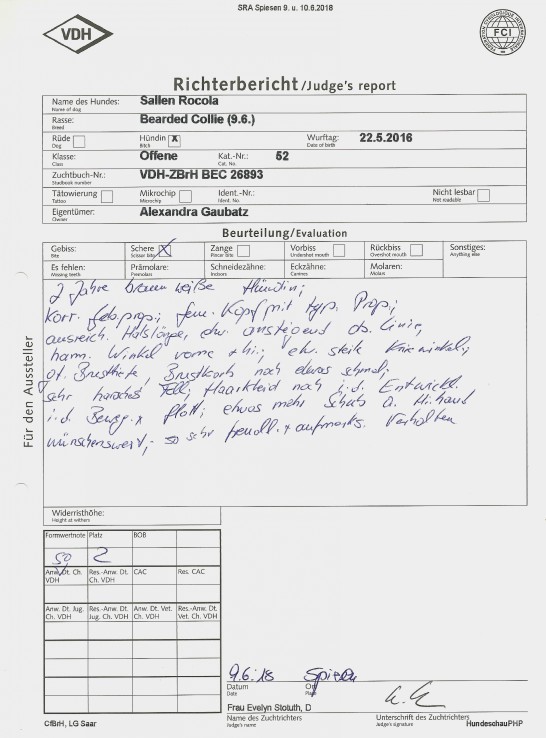 SRA Spiesen 9. u. 10.6.2018
VDH
FCI
Richterbericht /Judge's report
Name des Hundes: Sallen Rocola
Name of dog
Rasse: Bearded Collie (9.6.)
Breed
Rüde Hündin X Wurftag: 22.5.2016
Dog Bitch Date of birth
Klasse: Offene Kat.-Nr.: 52
Class Cat. No.
Zuchtbuch-Nr.: VDH-ZBrH BEC 26893
Studbook number
Tätowierung Mikrochip Ident.-Nr.: Nicht lesbar
Tattoo Microchip Ident. No. Not readable
Eigentümer: Alexandra Gaubatz
Owner
Beurteilung/Evaluation
Gebiss: Schere X Zange Vorbiss Rückbiss Sonstiges:
Bite Scissor bite Pincer bite Undershot mouth Overshot mouth Anything else
Es fehlen: Prämolare: Schneidezähne: Eckzähne: Molaren:
Missing teeth Premolars Incisors Canines Molars
2 Jahre braun weiße Hündin;
korr. Geb. prop; fem. Kopf mit typ. Prop;
ausreich. Halslänge, etw. ansteigend ob. Linie,
harm. Winkel vorne + hi; etw. steile Kniewinkel;
Brusttiefe Brustkorb noch etwas schmal;
sehr harsches Fell; Haarkleid noch i.d. Entwickl.
i.d. Beweg. flott; etwas mehr Schub a. Hihand
wünschenswert, - so sehr freudl. + aufmerks. Verhalten
Für den Aussteller
Widerristhöhe:
Height at withers
Formwertnote Platz BOB
sg 2
Anw. Dt. Ch. VDH Res.-Anw. Dt. Ch. VDH CAC Res. CAC
Anw. Dt. Jug. Ch. VDH Res.-Anw. Dt. Jug. Ch. VDH Anw. Dt. Vet. Ch. VDH Res.-Anw. Dt. Vet. Ch. VDH
9.6.18 Spiesen
Datum Ort
Date Place
Frau Evelyn Stoluth, D
Name des Zuchtrichters Unterschrift des Zuchtrichters
Judge's name Judge's signature
CfBrH, LG Saar HundeschauPHP